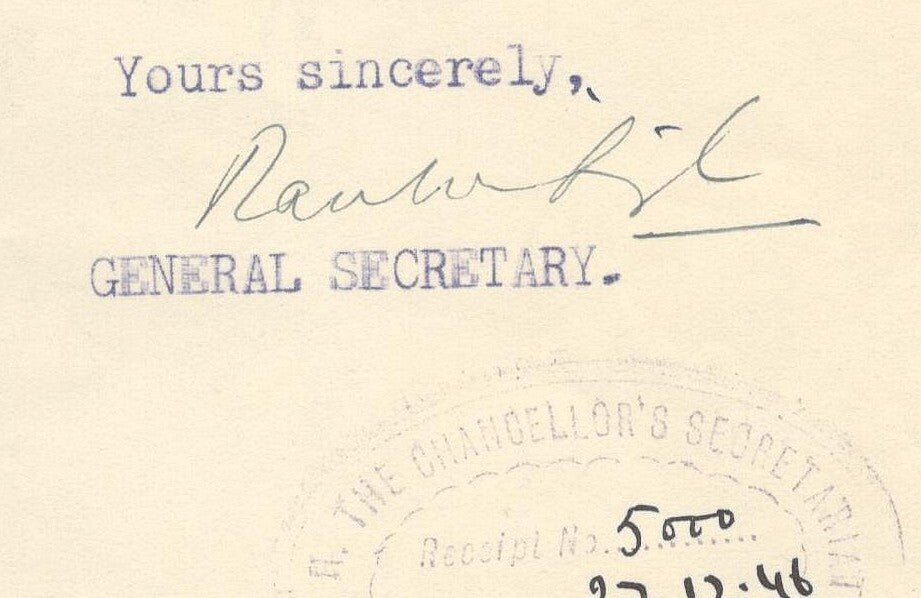 Yours sincerely,
GENERAL SECRETARY.
H. THE CHANCELLOR'S SECRETARIAT
Receipt No. 5000
27.12.46